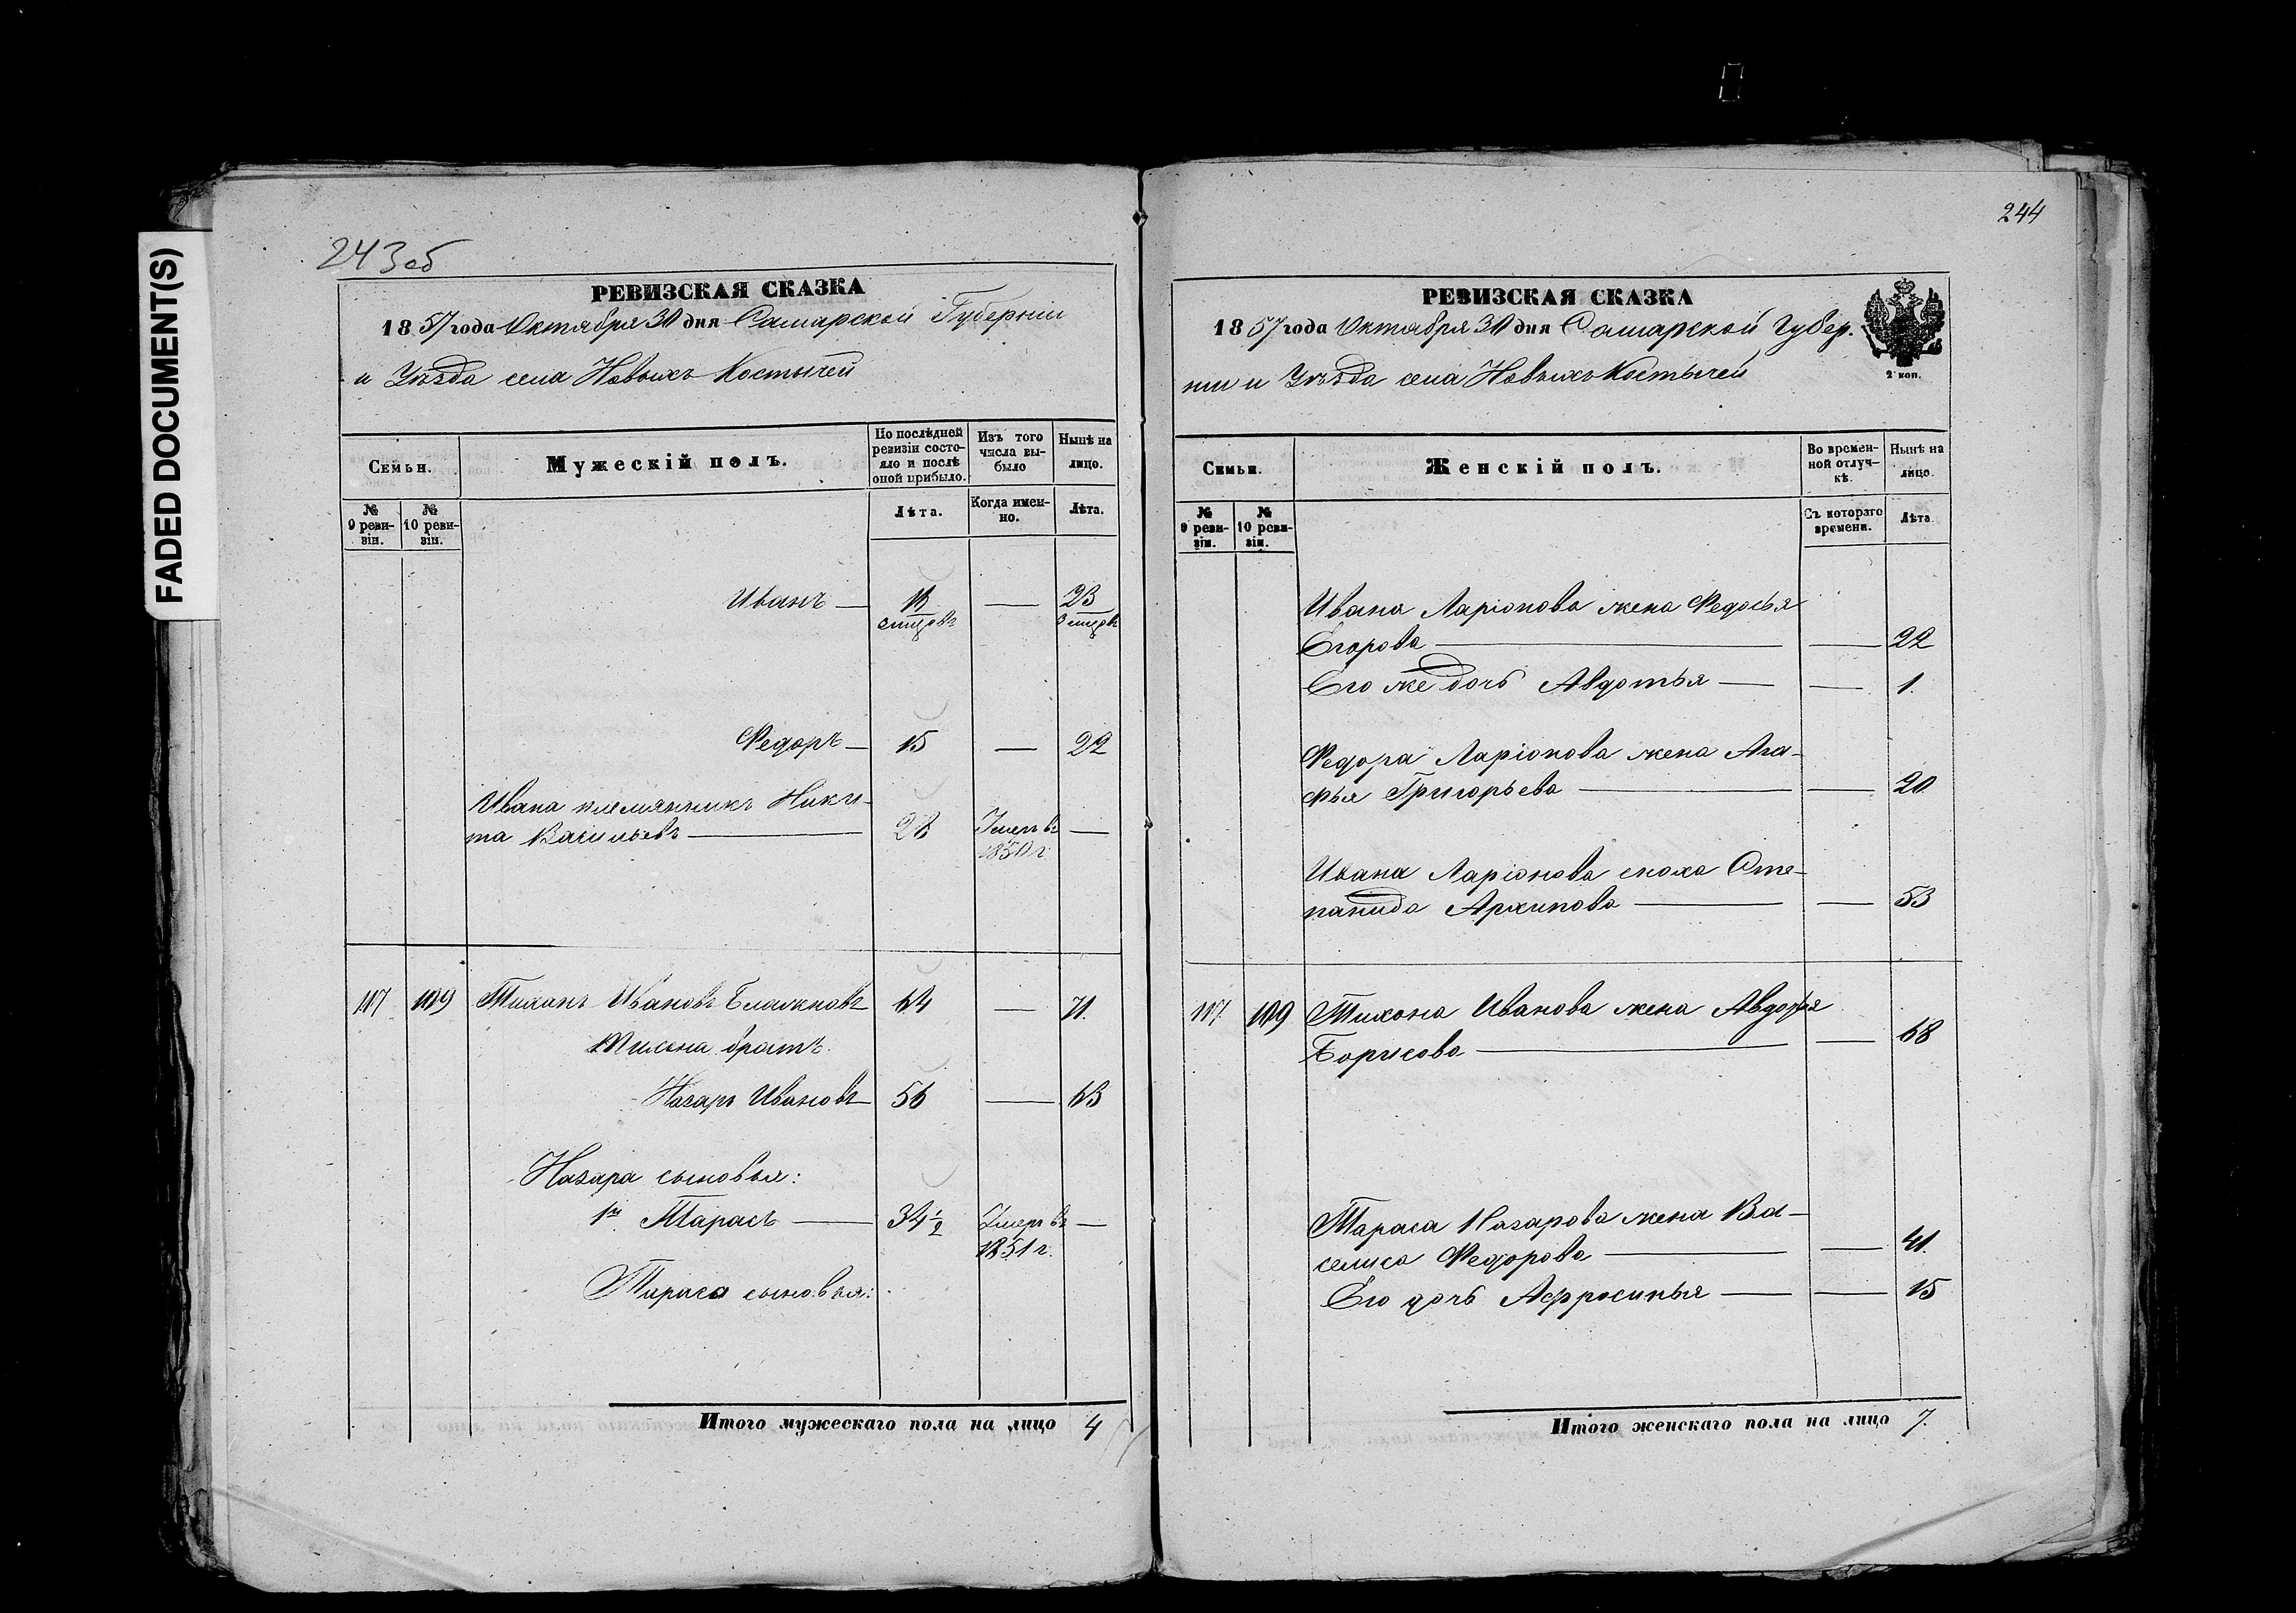 FADED DOCUMENT(S)
243об
РЕВИЗСКАЯ СКАЗКА
1857 года Октября 30 дня Самарской Губернiи
и Уѣзда села Новыхъ Костычей
Семьи.
Мужескiй полъ.
По послѣдней ревизiи состояло и послѣ оной прибыло.
Изъ того числа выбыло
Нынѣ на лицо.
№ 9 ревизiи.
№ 10 ревизiи.
Лѣта.
Когда именно.
Лѣта.
Иванъ — 16 — 23
Федоръ — 15 — 22
Ивана племянникъ Ники-
та Васильевъ — 28 Умеръ въ —
1850 г.
107 109 Тихонъ Ивановъ 64 — 71.
Тихона братъ.
Назаръ Ивановъ — 56 — 63
Назара сыновья:
1й Тарасъ — 34 1/2 Умеръ въ —
1851 г.
Тараса сыновья:
Итого мужескаго пола на лицо 4
244
РЕВИЗСКАЯ СКАЗКА
1857 года Октября 30 дня Самарской Губер.
нiи и Уѣзда села Новыхъ Костычей
2 коп.
Семьи.
Женскiй полъ.
Во временной отлучкѣ.
Нынѣ на лицо.
№ 9 ревизiи.
№ 10 ревизiи.
Съ котораго времени.
Лѣта.
Ивана Ларiонова жена Федосья
Егорова — — 22
Его же дочь Авдотья — — 1.
Федора Ларiонова жена Ага-
фья Григорьева — — 20
Ивана Ларiонова сноха Сте-
панида Архипова — — 53
107. 109 Тихона Иванова жена Авдотья
Борисова — — 68
Тараса Назарова жена Ва-
селиса Федорова — — 41.
Его дочь Афросинья — — 15
Итого женскаго пола на лицо 7.